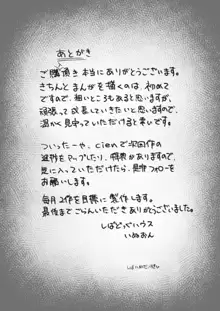 あとがき
ご購読き本当にありがとうございます。
きちんとまんがを描くのは、初めて
ですので、拙いところもあると思いますが、
頑張って成長していきたいと思いますので、
温かく見守っていただけると幸いです。
ついったーや、cienで次回作の
進捗をupしたり、
気に入っていただけたら、是非フォローを
お願いします。
毎月2作を目標に製作します。
最後までごらんいただきありがとうございました。
しばどっぐハウス
いぬあん